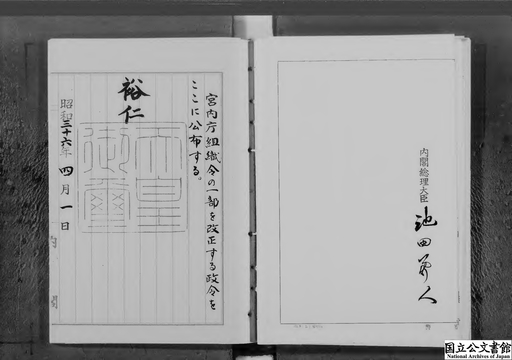 内閣総理大臣
池田勇人
宮内庁組織令の一部を改正する政令を
ここに公布する。
裕仁
天皇
御璽
昭和三十六年四月一日
内閣
国立公文書館
National Archives of Japan